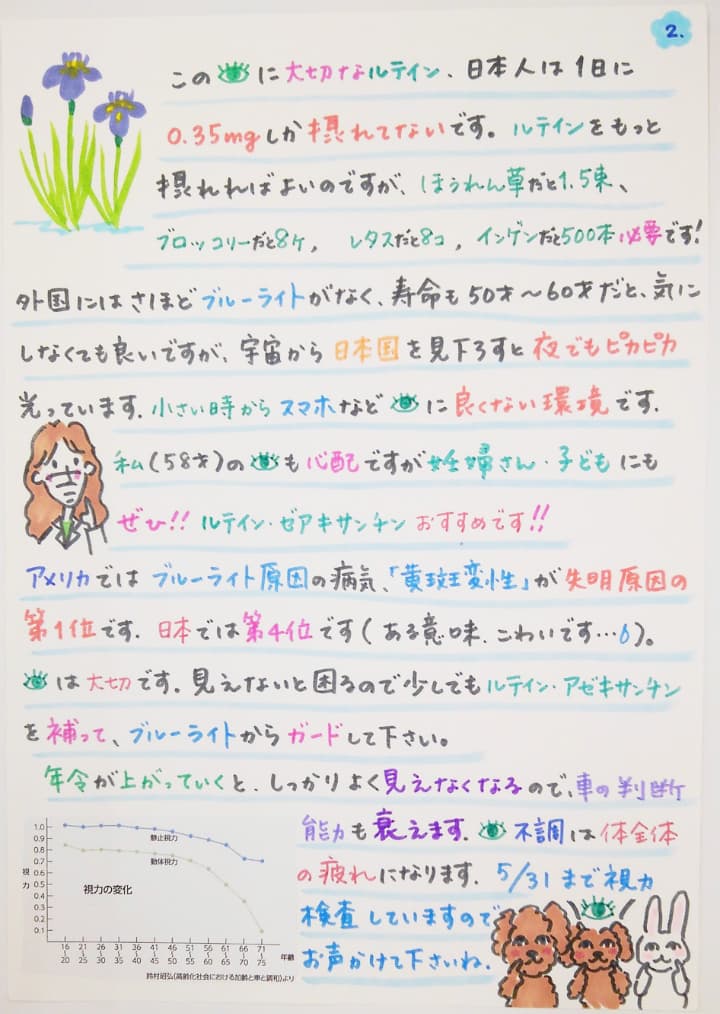 2.
この👁に大切なルテイン、日本人は1日に
0.35mgしか摂れてないです。ルテインをもっと
摂れればよいのですが、ほうれん草だと1.5束、
ブロッコリーだと8ケ, レタスだと8コ, インゲンだと500本必要です!
外国にはさほどブルーライトがなく、寿命も50才〜60才だと、気に
しなくても良いですが、宇宙から日本国を見下ろすと夜でもピカピカ
光っています。小さい時からスマホなど👁に良くない環境です。
私(58才)の👁も心配ですが妊婦さん・子どもにも
ぜひ!! ルテイン・ゼアキサンチンおすすめです!!
アメリカではブルーライト原因の病気、「黄斑変性」が失明原因の
第1位です。日本では第4位です(ある意味、こわいです…)。
👁は大切です。見えないと困るので少しでもルテイン・アゼキサンチン
を補って、ブルーライトからガードして下さい。
年令が上がっていくと、しっかりよく見えなくなるので、車の判断
能力も衰えます。👁不調は体全体
の疲れになります。5/31まで視力
検査していますので
お声かけて下さいね。
視力の変化
静止視力
動体視力
視力
1.0
0.9
0.8
0.7
0.6
0.5
0.4
0.3
0.2
0.1
16〜20 21〜25 26〜30 31〜35 36〜40 41〜45 46〜50 51〜55 56〜60 61〜65 66〜70 71〜75 年齢
鈴村昭弘(高齢化社会における加齢と車と調和)より